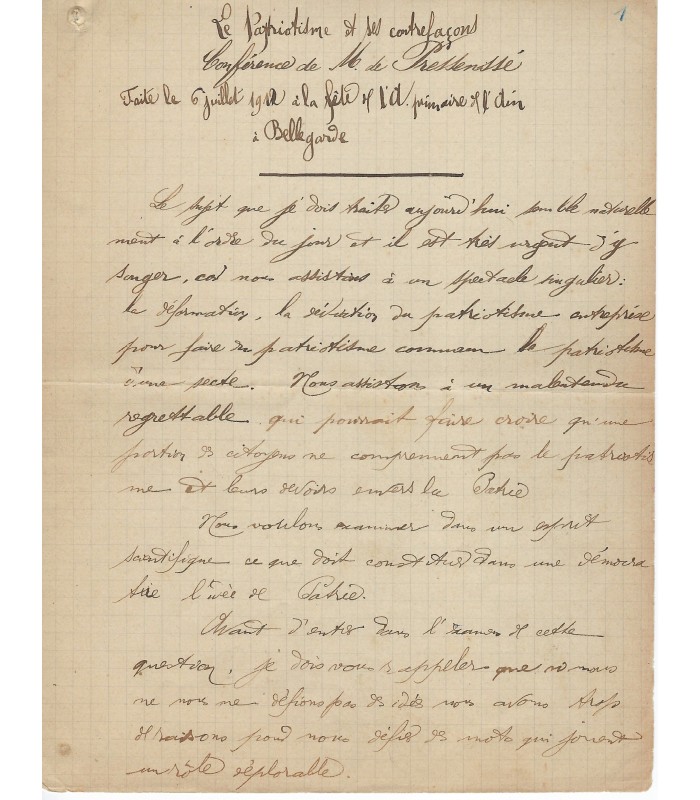 1
Le Patriotisme et ses contrefaçons
Conférence de M. de Pressensé
Faite le 6 juillet 1912 à la fête de l'A. primaire de l'Ain
à Bellegarde
Le sujet que je dois traiter aujourd'hui semble naturelle
ment à l'ordre du jour et il est très urgent d'y
songer, car nous assistons à un spectacle singulier:
la déformation, la déviation du patriotisme entreprise
pour faire du patriotisme commun le patriotisme
d'une secte. Nous assistons à un malentendu
regrettable qui pourrait faire croire qu'une
portion de citoyens ne comprennent pas le patriotis
me et leurs devoirs envers la Patrie
Nous voulons examiner dans un esprit
scientifique ce que doit constituer dans une démocra
tie l'idée de Patrie.
Avant d'entrer dans l'examen de cette
question, je dois vous rappeler que si nous
ne nous défions pas des idées nous avons trop
de raisons pour nous défier des mots qui jouent
un rôle déplorable.